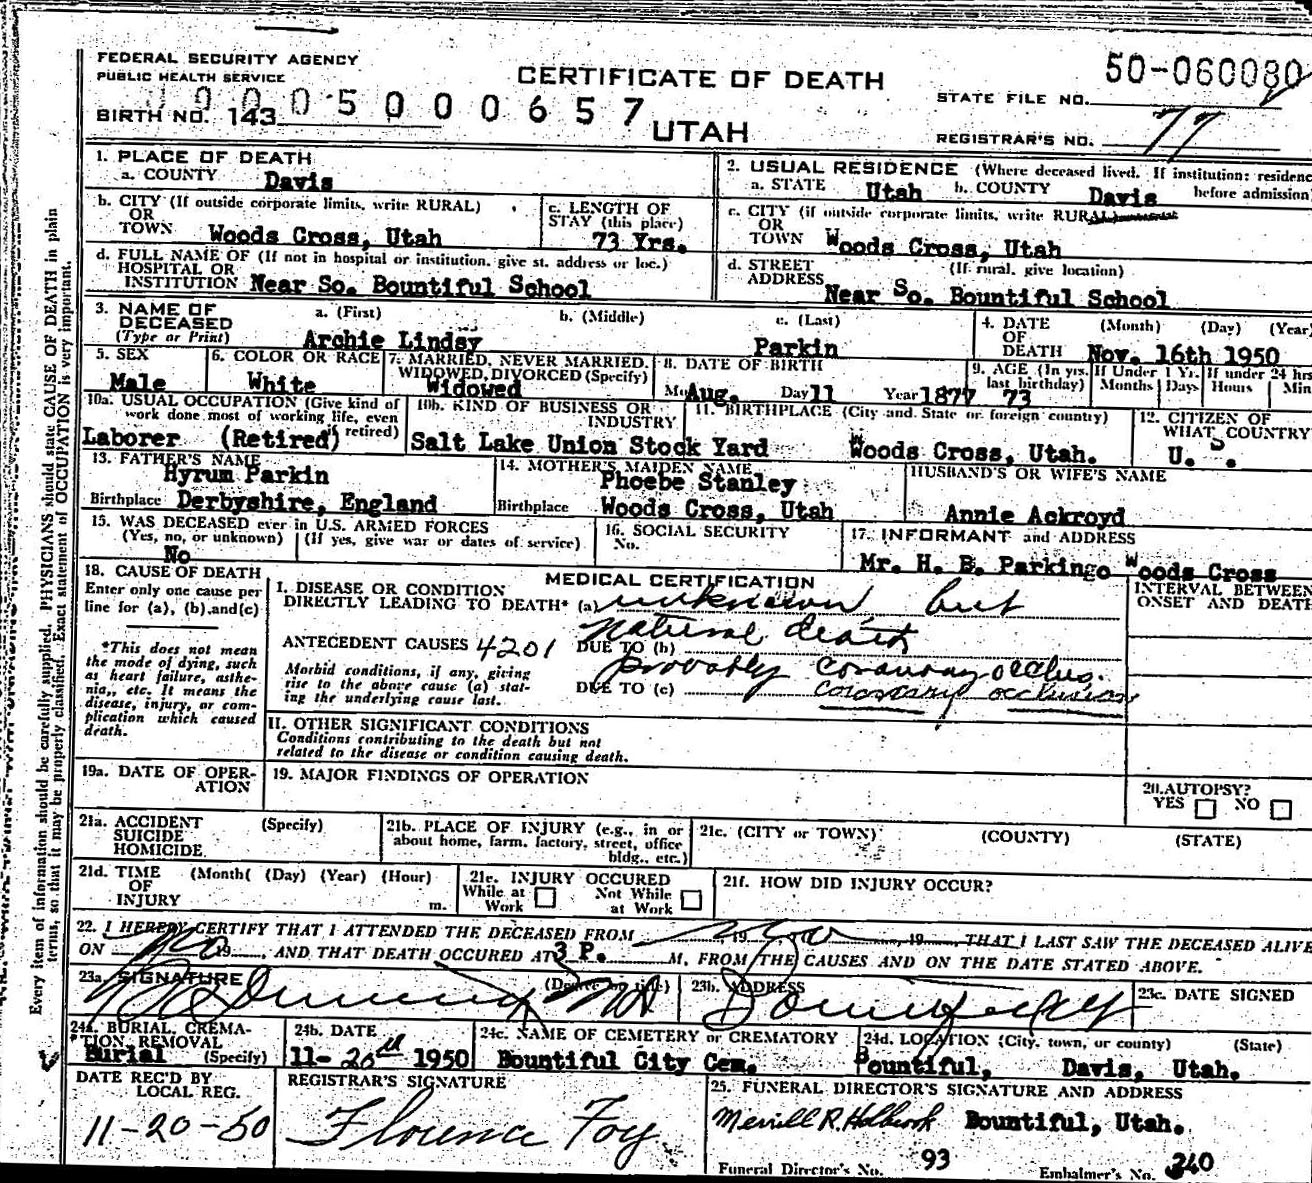 FEDERAL SECURITY AGENCY
PUBLIC HEALTH SERVICE
CERTIFICATE OF DEATH
50-060080
STATE FILE NO.
BIRTH NO. 143
5000657
UTAH
REGISTRAR'S NO. 77
1. PLACE OF DEATH
a. COUNTY Davis
2. USUAL RESIDENCE (Where deceased lived. If institution: residence
a. STATE Utah b. COUNTY Davis before admission)
b. CITY (If outside corporate limits, write RURAL)
OR
TOWN Woods Cross, Utah
c. LENGTH OF
STAY (this place)
73 Yrs.
c. CITY (if outside corporate limits, write RURAL)
OR
TOWN Woods Cross, Utah
d. FULL NAME OF (If not in hospital or institution, give st. address or loc.)
HOSPITAL OR
INSTITUTION Near So. Bountiful School
d. STREET (If rural, give location)
ADDRESS Near So. Bountiful School
3. NAME OF
DECEASED
(Type or Print)
a. (First) b. (Middle) c. (Last)
Archie Lindsy Parkin
4. DATE (Month) (Day) (Year)
OF
DEATH Nov. 16th 1950
5. SEX
Male
6. COLOR OR RACE
White
7. MARRIED, NEVER MARRIED,
WIDOWED, DIVORCED (Specify)
Widowed
8. DATE OF BIRTH
Mo Aug. Day 11 Year 1877
9. AGE (In yrs.
last birthday)
73
If Under 1 Yr.
Months Days
If under 24 hrs
Hours Min
10a. USUAL OCCUPATION (Give kind of
work done most of working life, even
if retired)
Laborer (Retired)
10b. KIND OF BUSINESS OR
INDUSTRY
Salt Lake Union Stock Yard
11. BIRTHPLACE (City and State or foreign country)
Woods Cross, Utah.
12. CITIZEN OF
WHAT COUNTRY
U. S.
13. FATHER'S NAME
Hyrum Parkin
Birthplace Derbyshire, England
14. MOTHER'S MAIDEN NAME
Phoebe Stanley
Birthplace Woods Cross, Utah
HUSBAND'S OR WIFE'S NAME
Annie Ackroyd
15. WAS DECEASED ever in U.S. ARMED FORCES
(Yes, no, or unknown) (If yes, give war or dates of service)
No
16. SOCIAL SECURITY
No.
17. INFORMANT and ADDRESS
Mr. H. B. Parkingo Woods Cross
18. CAUSE OF DEATH
Enter only one cause per
line for (a), (b), and (c)
*This does not mean
the mode of dying, such
as heart failure, asthe-
nia, etc. It means the
disease, injury, or com-
plication which caused
death.
MEDICAL CERTIFICATION
INTERVAL BETWEEN
ONSET AND DEATH
I. DISEASE OR CONDITION
DIRECTLY LEADING TO DEATH* (a) unknown but
natural death
ANTECEDENT CAUSES 4201 DUE TO (b)
provably coronary occlus.
Morbid conditions, if any, giving
rise to the above cause (a) stat-
ing the underlying cause last.
DUE TO (c) coronary occlusion
II. OTHER SIGNIFICANT CONDITIONS
Conditions contributing to the death but not
related to the disease or condition causing death.
19a. DATE OF OPER-
ATION
19. MAJOR FINDINGS OF OPERATION
20. AUTOPSY?
YES NO
21a. ACCIDENT (Specify)
SUICIDE
HOMICIDE
21b. PLACE OF INJURY (e.g., in or
about home, farm, factory, street, office
bldg., etc.)
21c. (CITY or TOWN) (COUNTY) (STATE)
21d. TIME (Month( (Day) (Year) (Hour)
OF
INJURY m.
21e. INJURY OCCURED
While at Work Not While at Work
21f. HOW DID INJURY OCCUR?
22. I HEREBY CERTIFY THAT I ATTENDED THE DECEASED FROM , 19 , 19 THAT I LAST SAW THE DECEASED ALIVE
ON No 19 , AND THAT DEATH OCCURED AT 3 P. M, FROM THE CAUSES AND ON THE DATE STATED ABOVE.
23a. SIGNATURE (Degree or title) MD
23b. ADDRESS
23c. DATE SIGNED
24a. BURIAL, CREMA-
TION, REMOVAL
Burial (Specify)
24b. DATE
11-20th 1950
24c. NAME OF CEMETERY or CREMATORY
Bountiful City Cem.
24d. LOCATION (City, town, or county) (State)
Bountiful, Davis, Utah.
DATE REC'D BY
LOCAL REG.
11-20-50
REGISTRAR'S SIGNATURE
Florence Foy
25. FUNERAL DIRECTOR'S SIGNATURE AND ADDRESS
Merrill R. Holbrook Bountiful, Utah.
Funeral Director's No. 93 Embalmer's No. 340
Every item of information should be carefully supplied. PHYSICIANS should state CAUSE OF DEATH in plain
terms, so that it may be properly classified. Exact statement of OCCUPATION is very important.